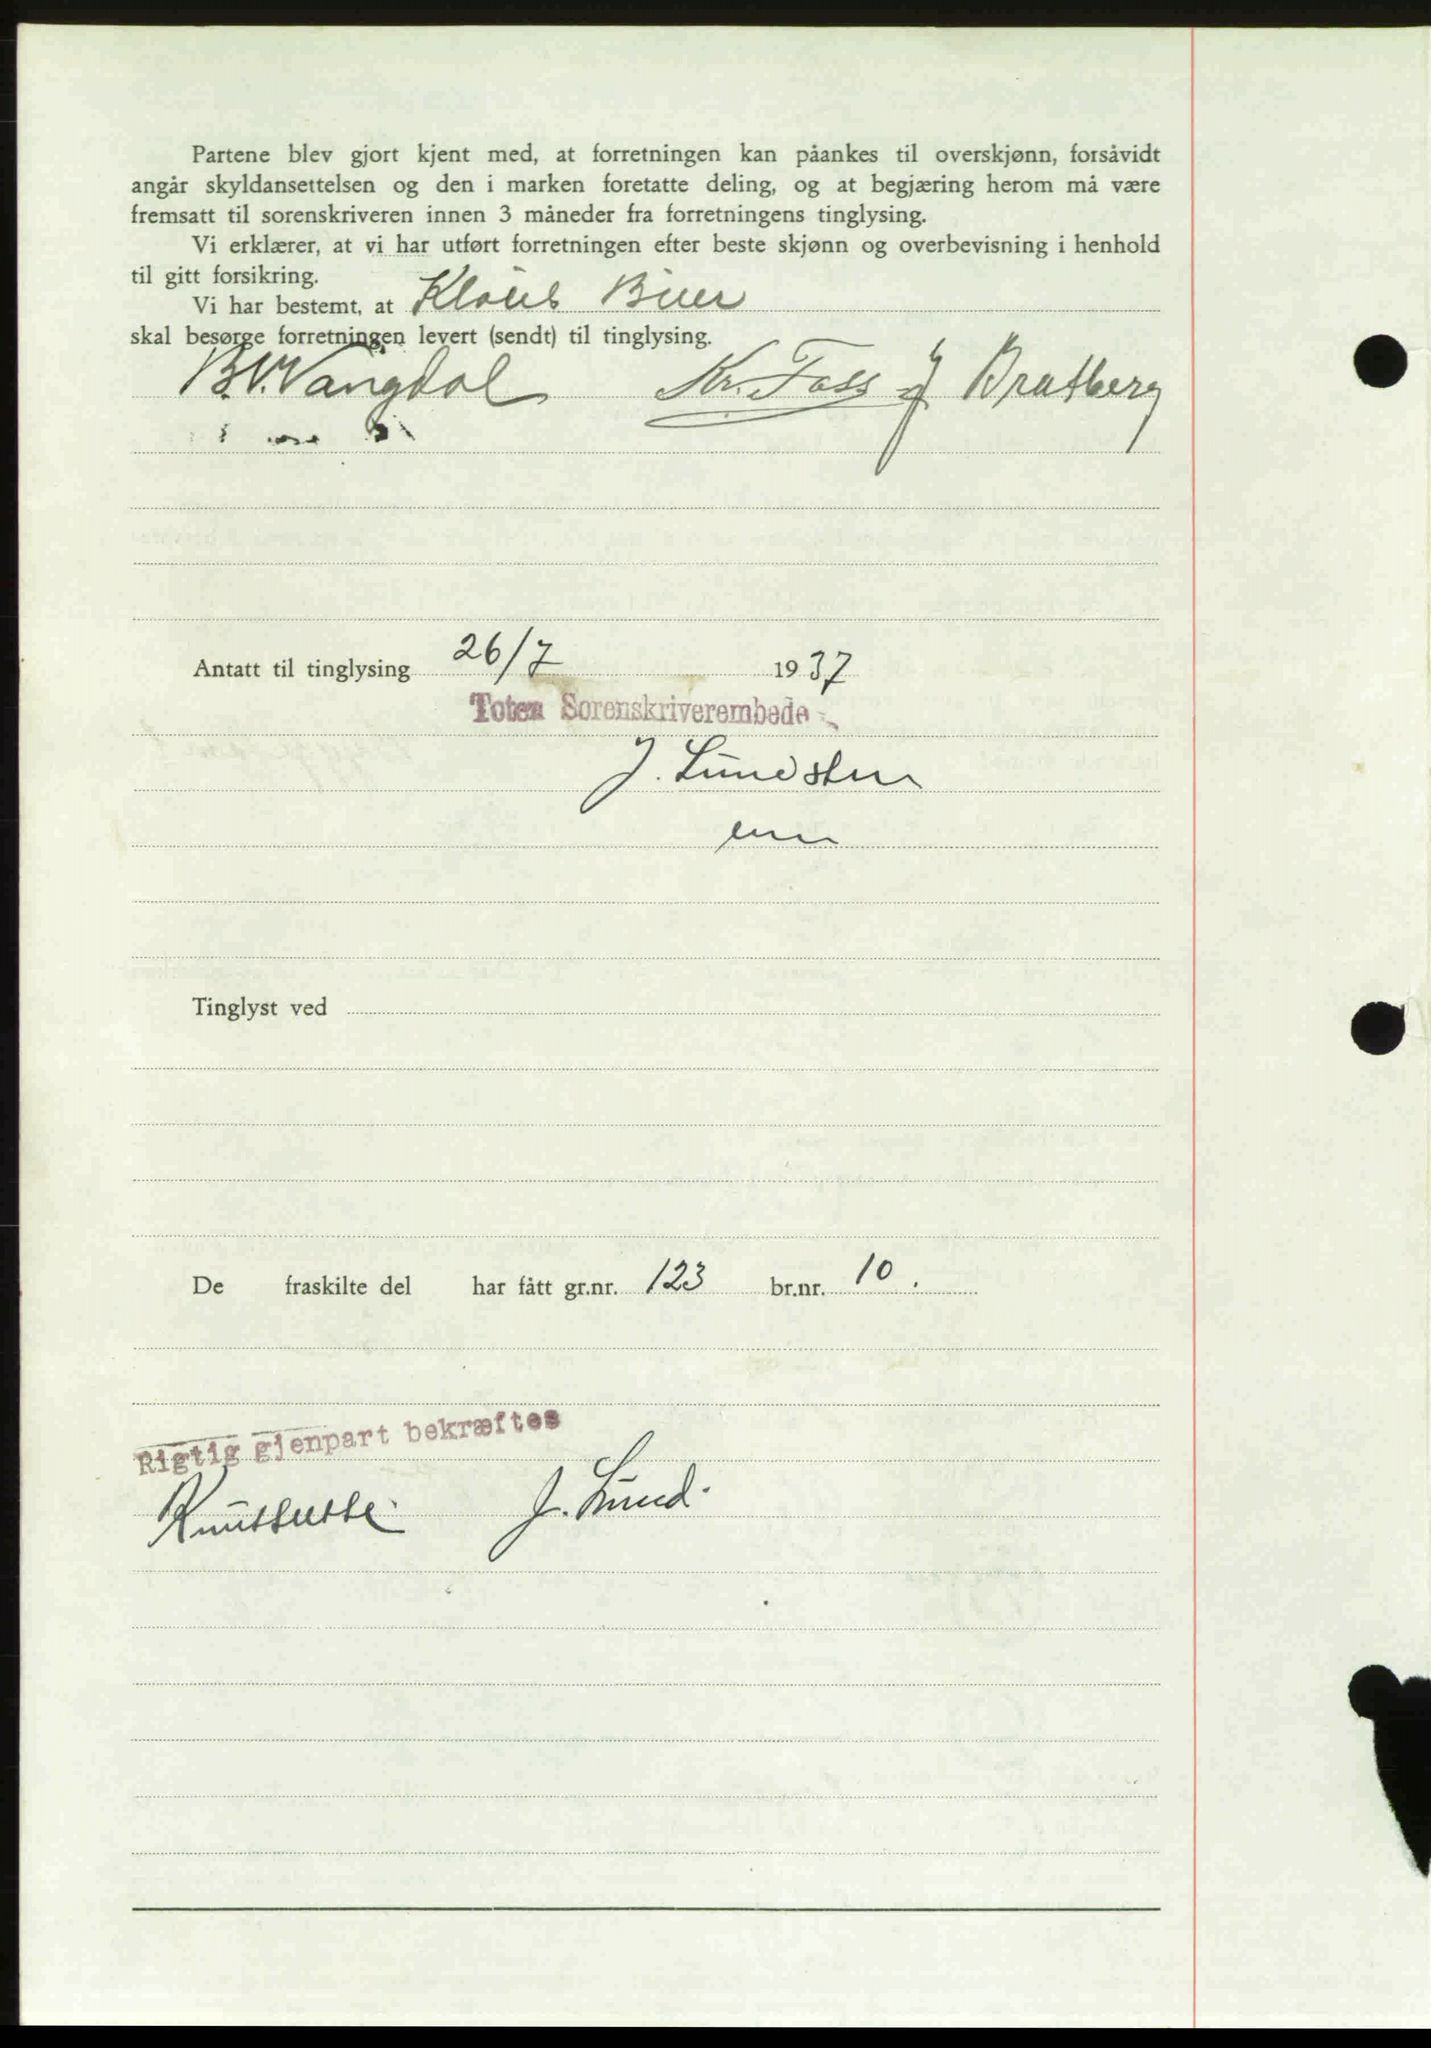 Partene blev gjort kjent med, at forretningen kan påankes til overskjønn, forsåvidt
angår skyldansettelsen og den i marken foretatte deling, og at begjæring herom må være
fremsatt til sorenskriveren innen 3 måneder fra forretningens tinglysing.
Vi erklærer, at vi har utført forretningen efter beste skjønn og overbevisning i henhold
til gitt forsikring.
Vi har bestemt, at Klaus
skal besørge forretningen levert (sendt) til tinglysing.
B.V. Vangdal Kr. Foss J Bratberg
Antatt til tinglysing 26/7 1937
Toten Sorenskriverembede
J. Lundsten
Tinglyst ved
De fraskilte del har fått gr.nr. 123 br.nr. 10.
Rigtig gjenpart bekræftes
J. Lund.